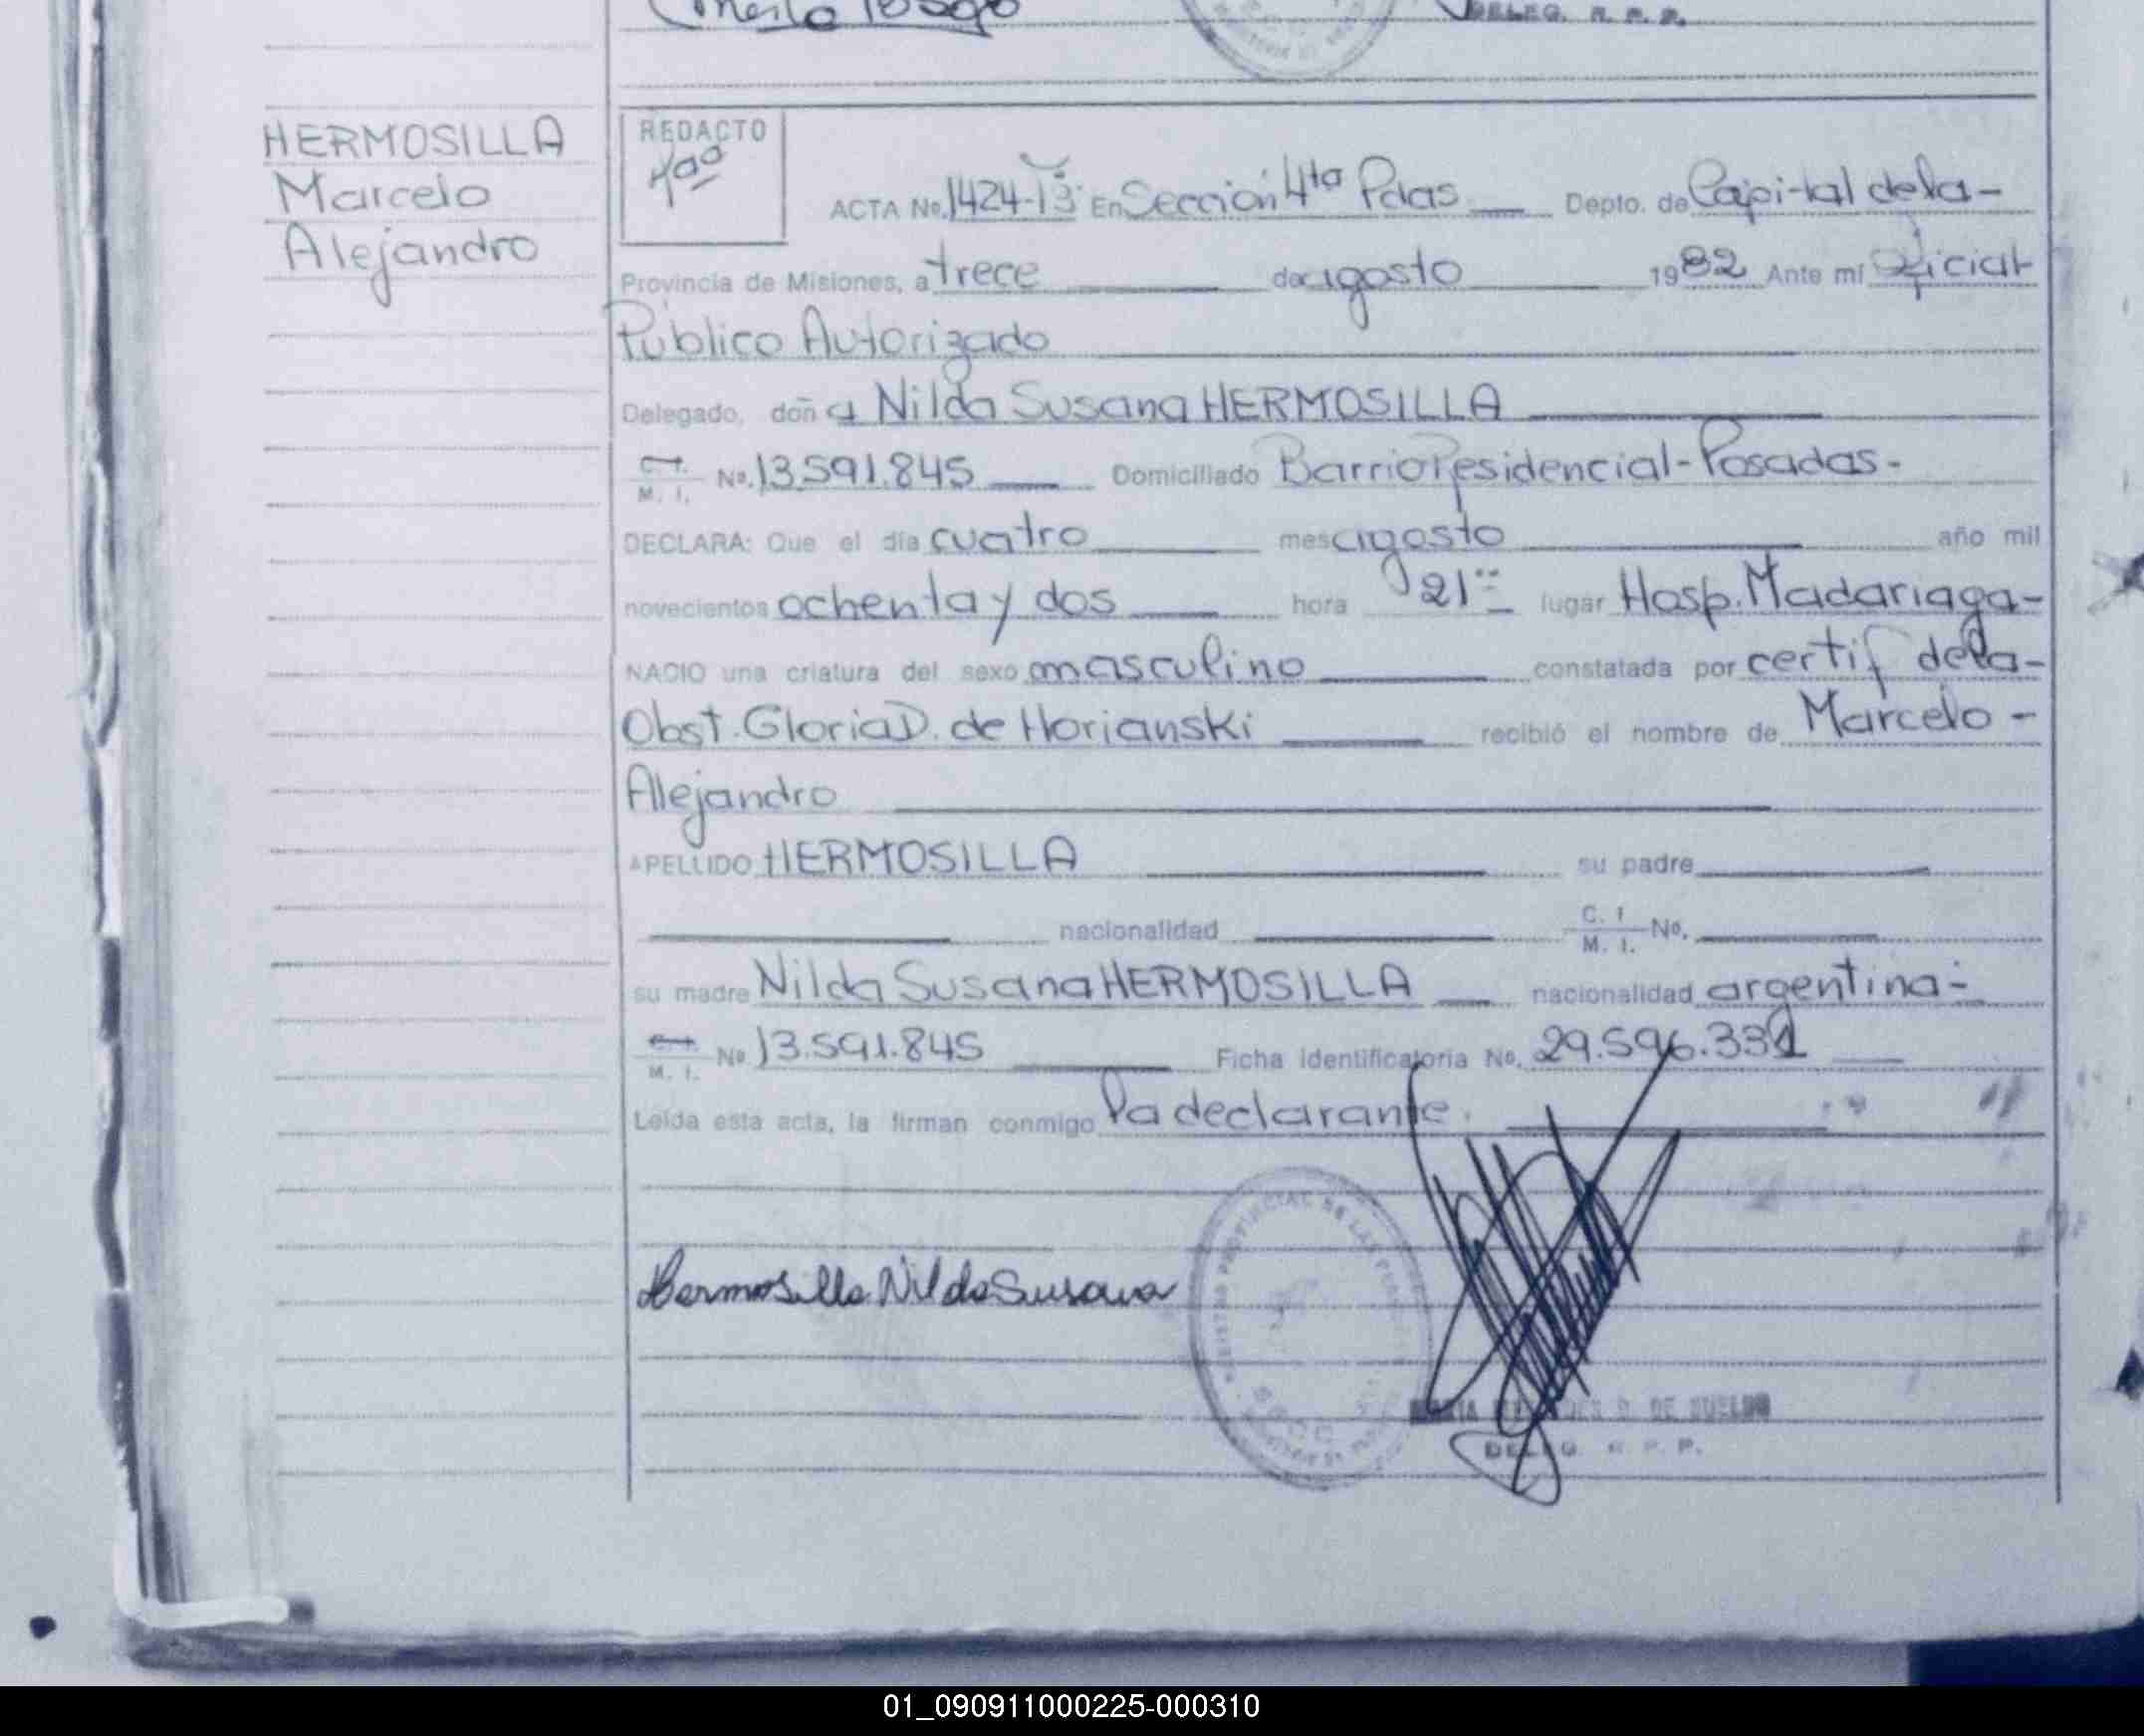 DELEG. R. P. P.
HERMOSILLA
Marcelo
Alejandro
REDACTO
ACTA No. 1424-13 En Sección 4ta Pdas Depto. de Capital de la -
Provincia de Misiones, a trece de agosto 1982 Ante mí Oficial
Público Autorizado
Delegado, doña Nilda Susana HERMOSILLA
C. I. M. I. No. 13.591.845 Domiciliado Barrio Residencial - Posadas -
DECLARA: Que el día cuatro mes agosto año mil
novecientos ochenta y dos hora 21 lugar Hosp. Madariaga -
NACIO una criatura del sexo masculino constatada por certif de la -
Obst. Gloria D. de Horianski recibió el nombre de Marcelo -
Alejandro
APELLIDO HERMOSILLA su padre
nacionalidad C. I. M. I. No.
su madre Nilda Susana HERMOSILLA nacionalidad argentina -
C. I. M. I. No 13.591.845 Ficha identificatoria No. 29.596.331
Leída esta acta, la firman conmigo la declarante.
Hermosilla Nilda Susana
DE SUELDO
DELEG. R. P. P.
01_090911000225-000310